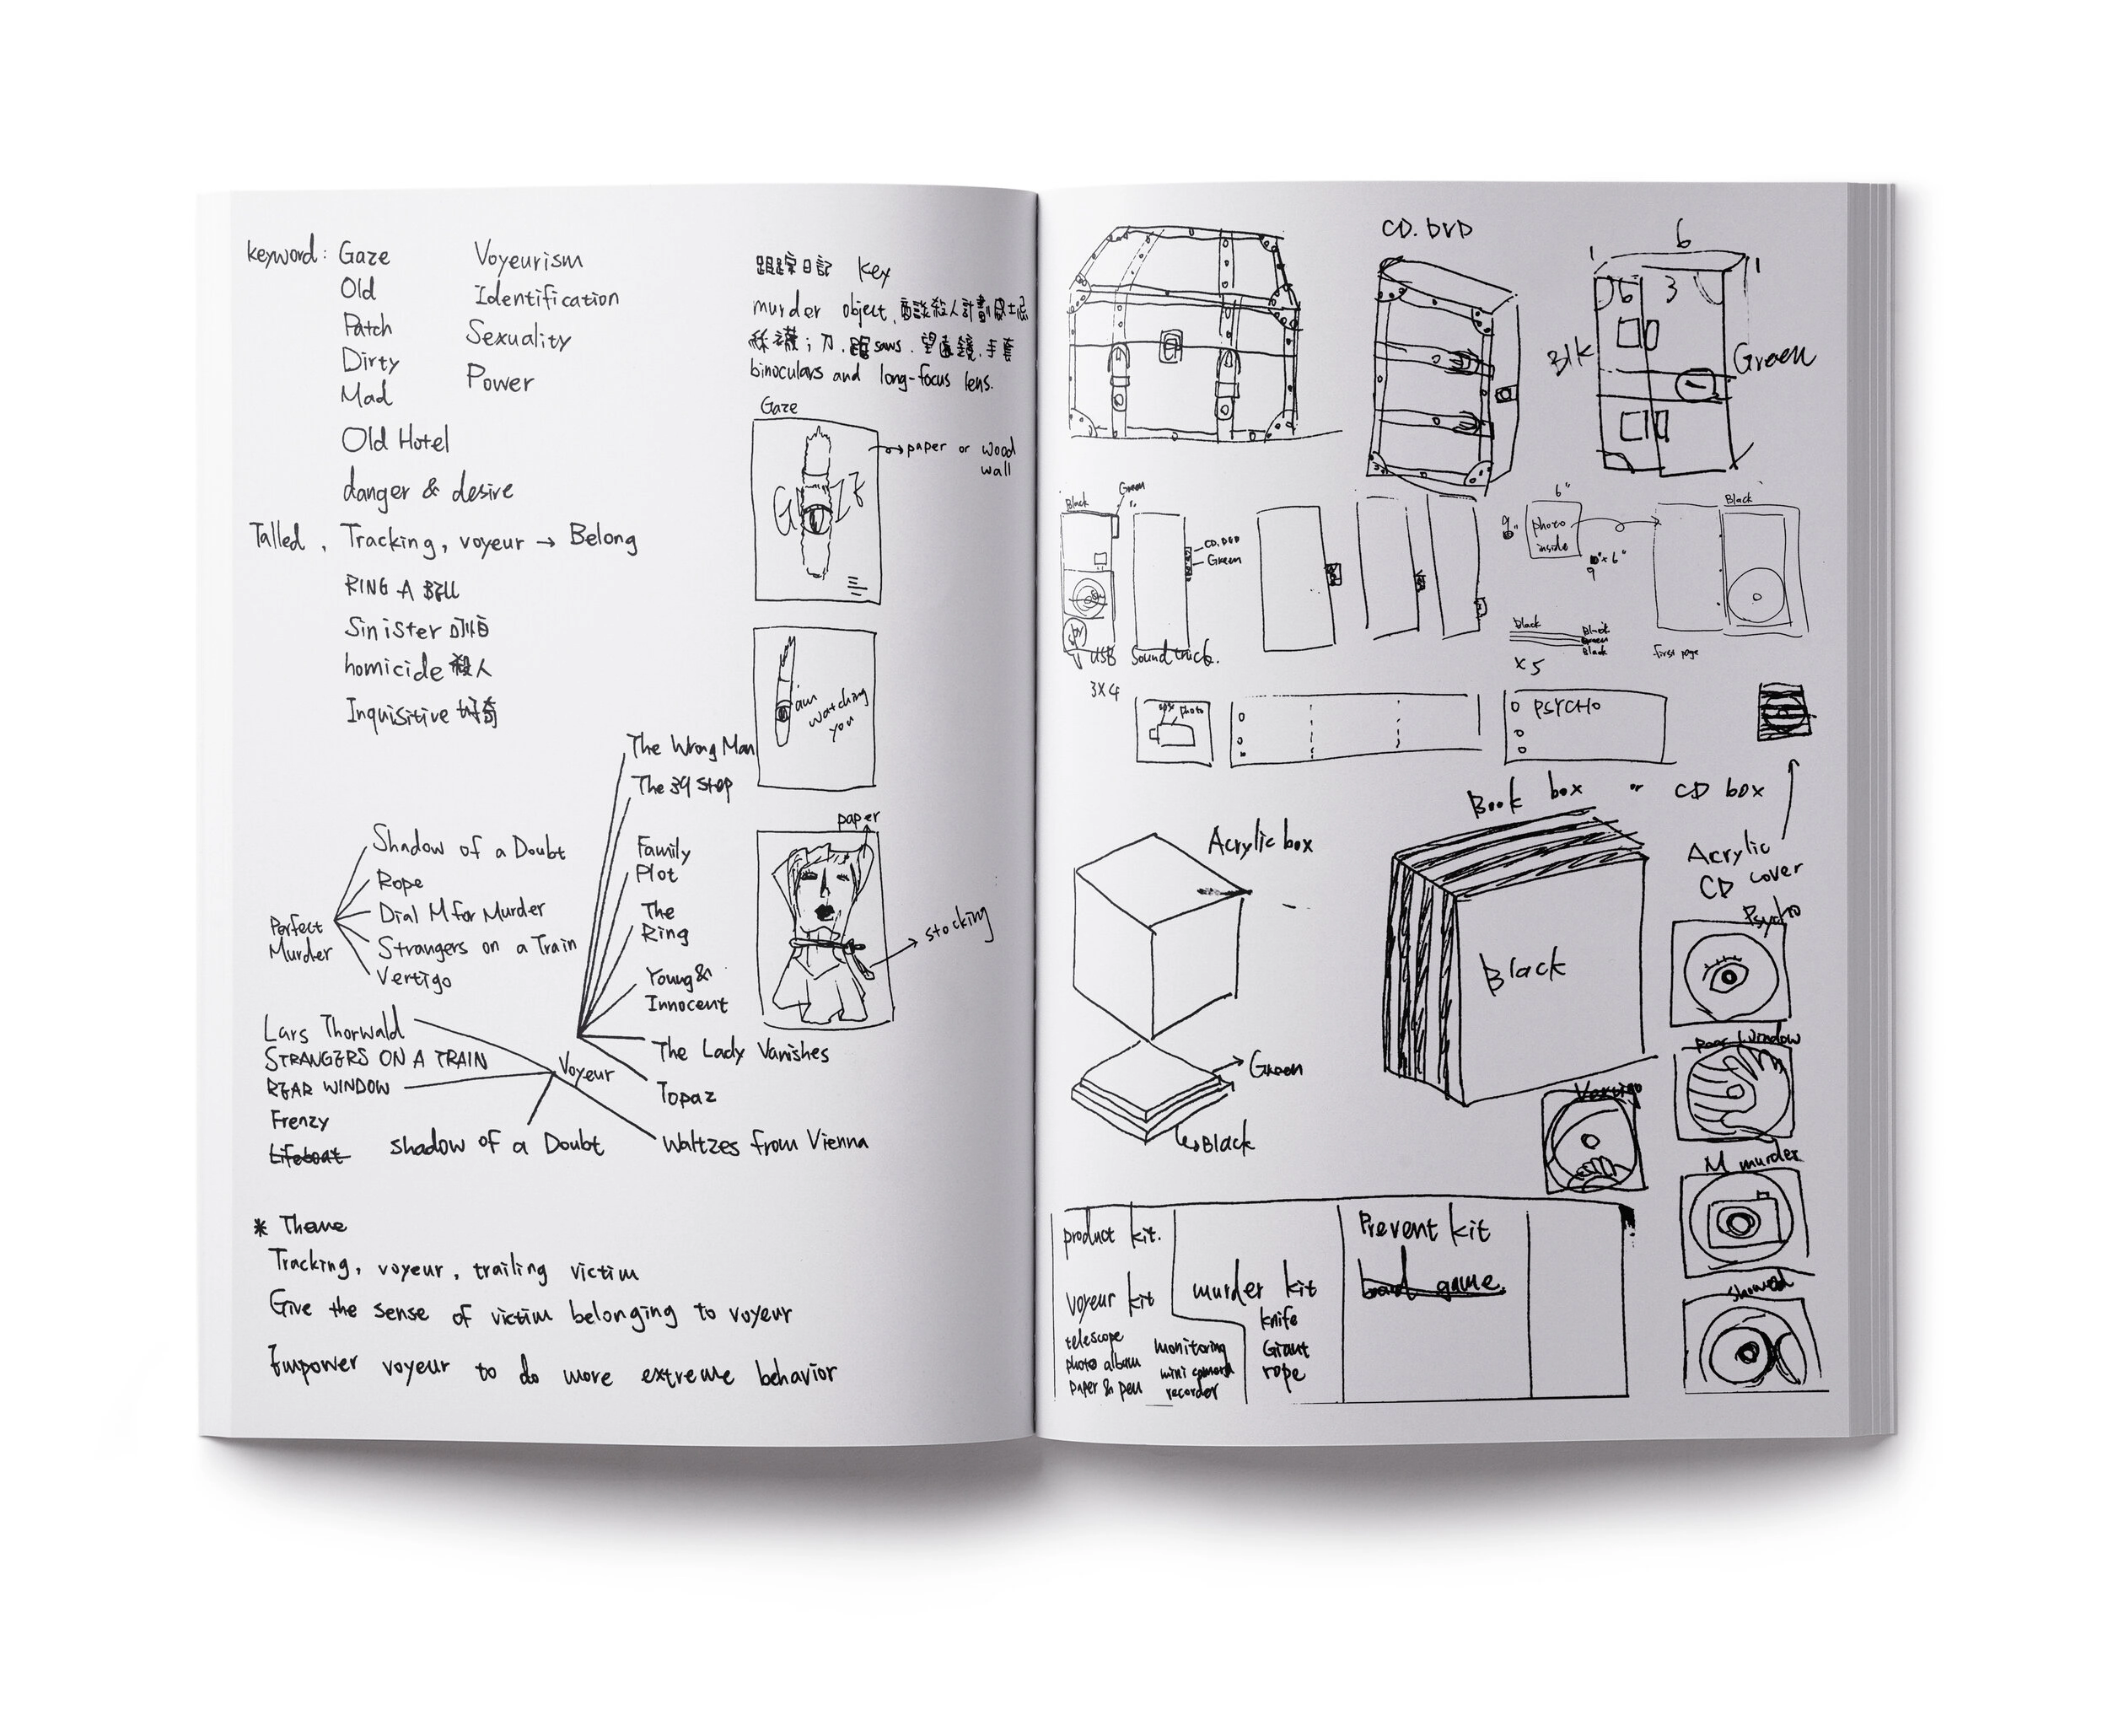 keyword: Gaze
Old
Patch
Dirty
Mad
Voyeurism
Identification
Sexuality
Power
Old Hotel
danger & desire
Talled, Tracking, voyeur → Belong
RING A BELL
Sinister
homicide 殺人
Inquisitive 好奇
跟踪日記 key
murder object, 商談殺人計劃
絲襪; 刀, saws. 望遠鏡, 手套
binoculars and long-focus lens.
Gaze
GAZE
→ paper or wood
wall
aim
watching
you
paper
→ stocking
Perfect
Murder
Shadow of a Doubt
Rope
Dial M for Murder
Strangers on a Train
Vertigo
The Wrong Man
The 39 Step
Family
Plot
The
Ring
Young &
Innocent
The Lady Vanishes
Topaz
Waltzes from Vienna
Voyeur
Lars Thorwald
STRANGERS ON A TRAIN
REAR WINDOW
Frenzy
Lifeboat
shadow of a Doubt
* Theme
Tracking, voyeur, trailing victim
Give the sense of victim belonging to voyeur
Empower voyeur to do more extreme behavior
CD. DVD
6
1
1
6 3
Blk
Green
Black
Green
CD. DVD
Green
USB Soundtrick.
3x4
6"
9"
photo
inside
9"x6"
Black
Black
Black
Green
Black
x5
first page
photo
PSYCHO
Book box or CD box
Acrylic box
Acrylic
CD cover
Black
→ Green
Black
Psycho
Rear Window
Vertigo
M murder
showed
product kit.
voyeur kit
telescope
photo album
paper & pen
monitoring
mini camera
recorder
murder kit
knife
Giant
rope
Prevent kit
bad game